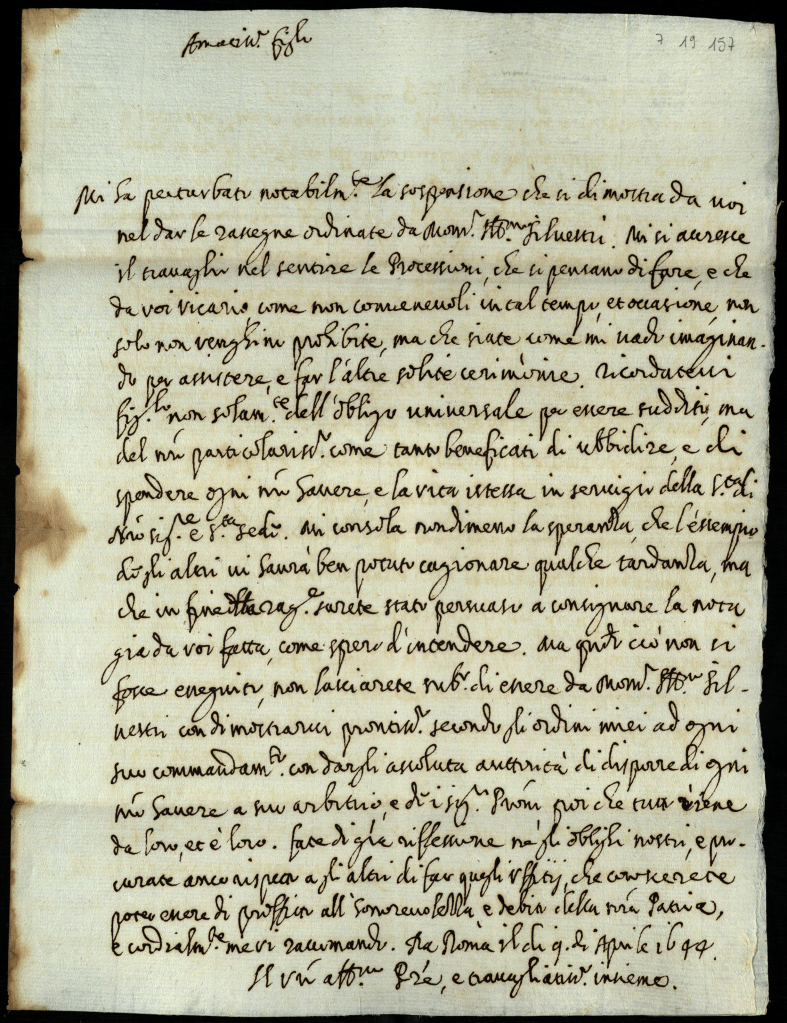 Amatis.mi figli
7 19 157
Mi ha perturbato notabilm.te la sospensione che si dimostra da voi
nel dar le rassegne ordinate da Mons.r Ill.mo Silvestri. Mi si accresce
il travaglio nel sentire le Processioni, che si pensano di fare, e che
da voi vicario, come non convenevoli in tal tempo, et occasione, non
solo non venghino prohibite, ma che siate come mi vado imaginan-
do per assistere, e far l'altre solite cerimonie. Ricordatevi
figl.li non solam.te dell'obligo universale per essere sudditi, ma
del nro particolariss.o come tanto beneficati di ubbidire, e di
spendere ogni nro havere, e la vita istessa in servigio della S.tà di
Nro Sig.re e S.ta Sede. Mi consola nondimeno la speranza, che l'essempio
degli altri vi havrà ben potuto cagionare qualche tardanza, ma
che in fine rag.e sarete stato persuaso a consignare la nota
già da voi fatta, come spero d'intendere. Ma qndo ciò non si
fosse eseguito, non lasciarete sub.o di essere da Mons.r Ill.mo Sil-
vestri con dimostrarvi prontiss.o secondo gli ordini miei ad ogni
suo commandam.to con dargli assoluta auttorità di disporre di ogni
nro havere a suo arbitrio, e de i sig.ri Proni poi che tutto viene
da loro, et è loro. Fate di già riflessione ne gli oblighi nostri, e pro-
curate anco rispetto a gli altri di far quegli uffitij, che conoscerete
poter essere di proffitto all'honorevolezza e debito della nra Patria,
e cordialm.te me vi raccomando. Da Roma il di 9. di Aprile 1644.
Il vro aff.mo Pre, e travagliatiss.o insieme.